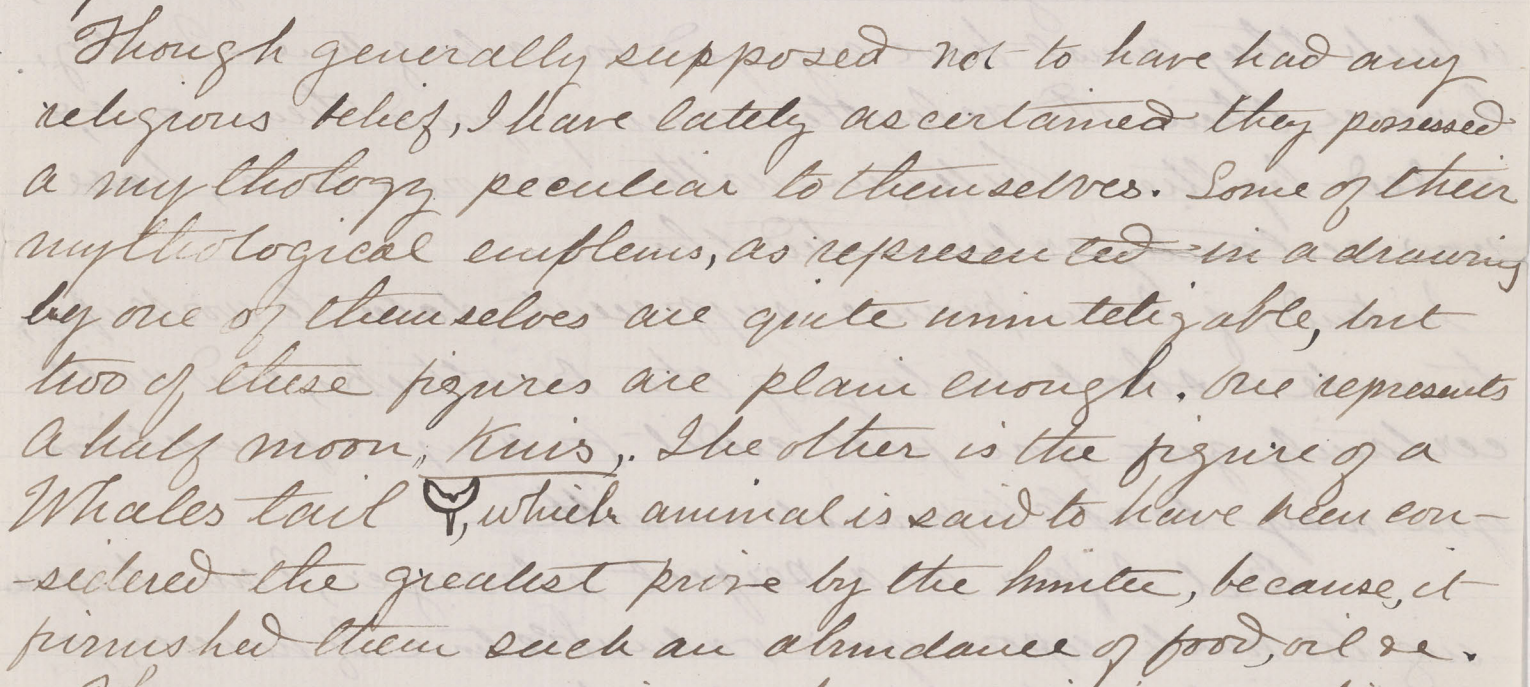 Though generally supposed not to have had any
religious belief, I have lately ascertained they possessed
a mythology peculiar to themselves. Some of their
mythological emblems, as represented in a drawing
by one of themselves are quite uninteligable, but
two of these figures are plain enough. One represents
a half moon, Kuis,. The other is the figure of a
Whales tail , which animal is said to have been con-
-sidered the greatest prize by the hunter, because, it
furnished them such an abundance of food, oil &c.